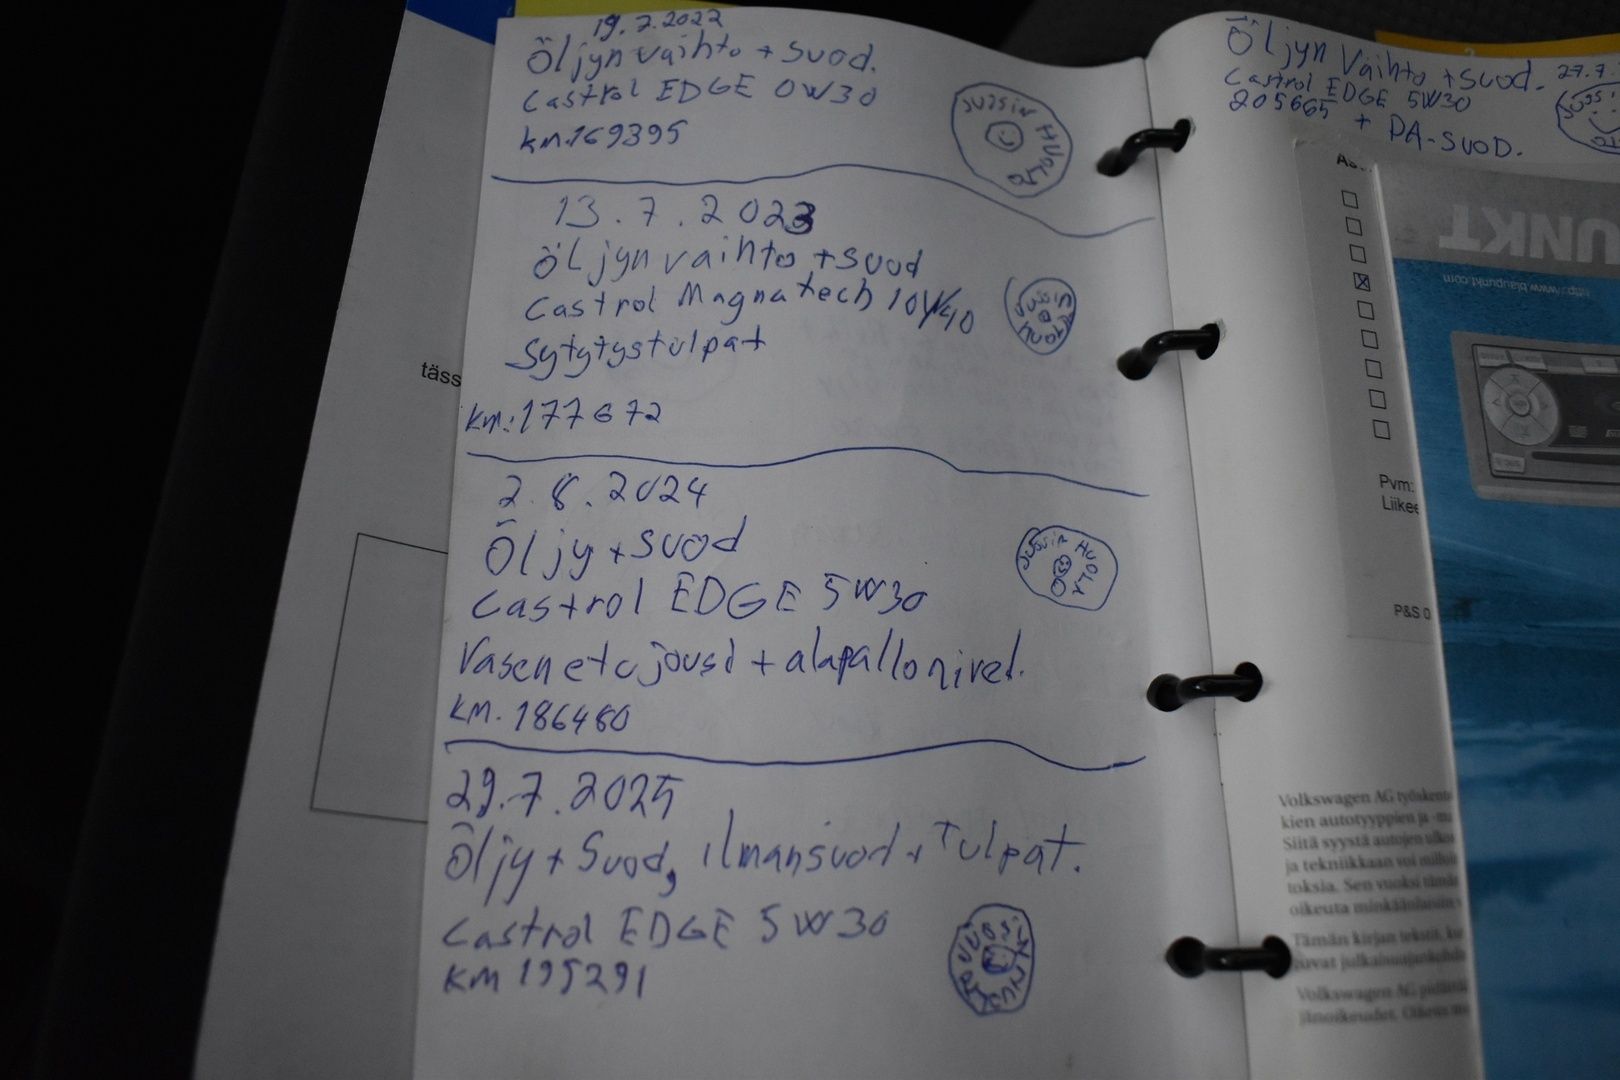 19.7.2022
Öljyn vaihto + suod.
Castrol EDGE 0W30
km.169395
JUSSIN HUOLTO
13.7.2023
Öljyn vaihto + suod
Castrol Magnatech 10W40
Sytytystulpat
km:177672
JUSSIN HUOLTO
2.8.2024
Öljy + suod
Castrol EDGE 5W30
Vasen etujousi + alapallonivel.
km. 186480
JUSSIN HUOLTO
29.7.2025
Öljy + Suod, ilmansuod + Tulpat.
Castrol EDGE 5W30
km 195291
JUSSIN HUOLTO
täss
Öljyn Vaihto + suod. 27.7.
Castrol EDGE 5W30
205665 + PA-SUOD.
UNKT
http://www.blaupunkt.com
Pvm:
Liike
P&S 0
Volkswagen AG työskente
kien autotyyppien ja -ma
Siitä syystä autojen ulko
ja tekniikkaan voi milloin
toksia. Sen vuoksi tämä
oikeuta minkäänlaisiin
Tämän kirjan tekstit, ku
Volkswagen AG pidättä